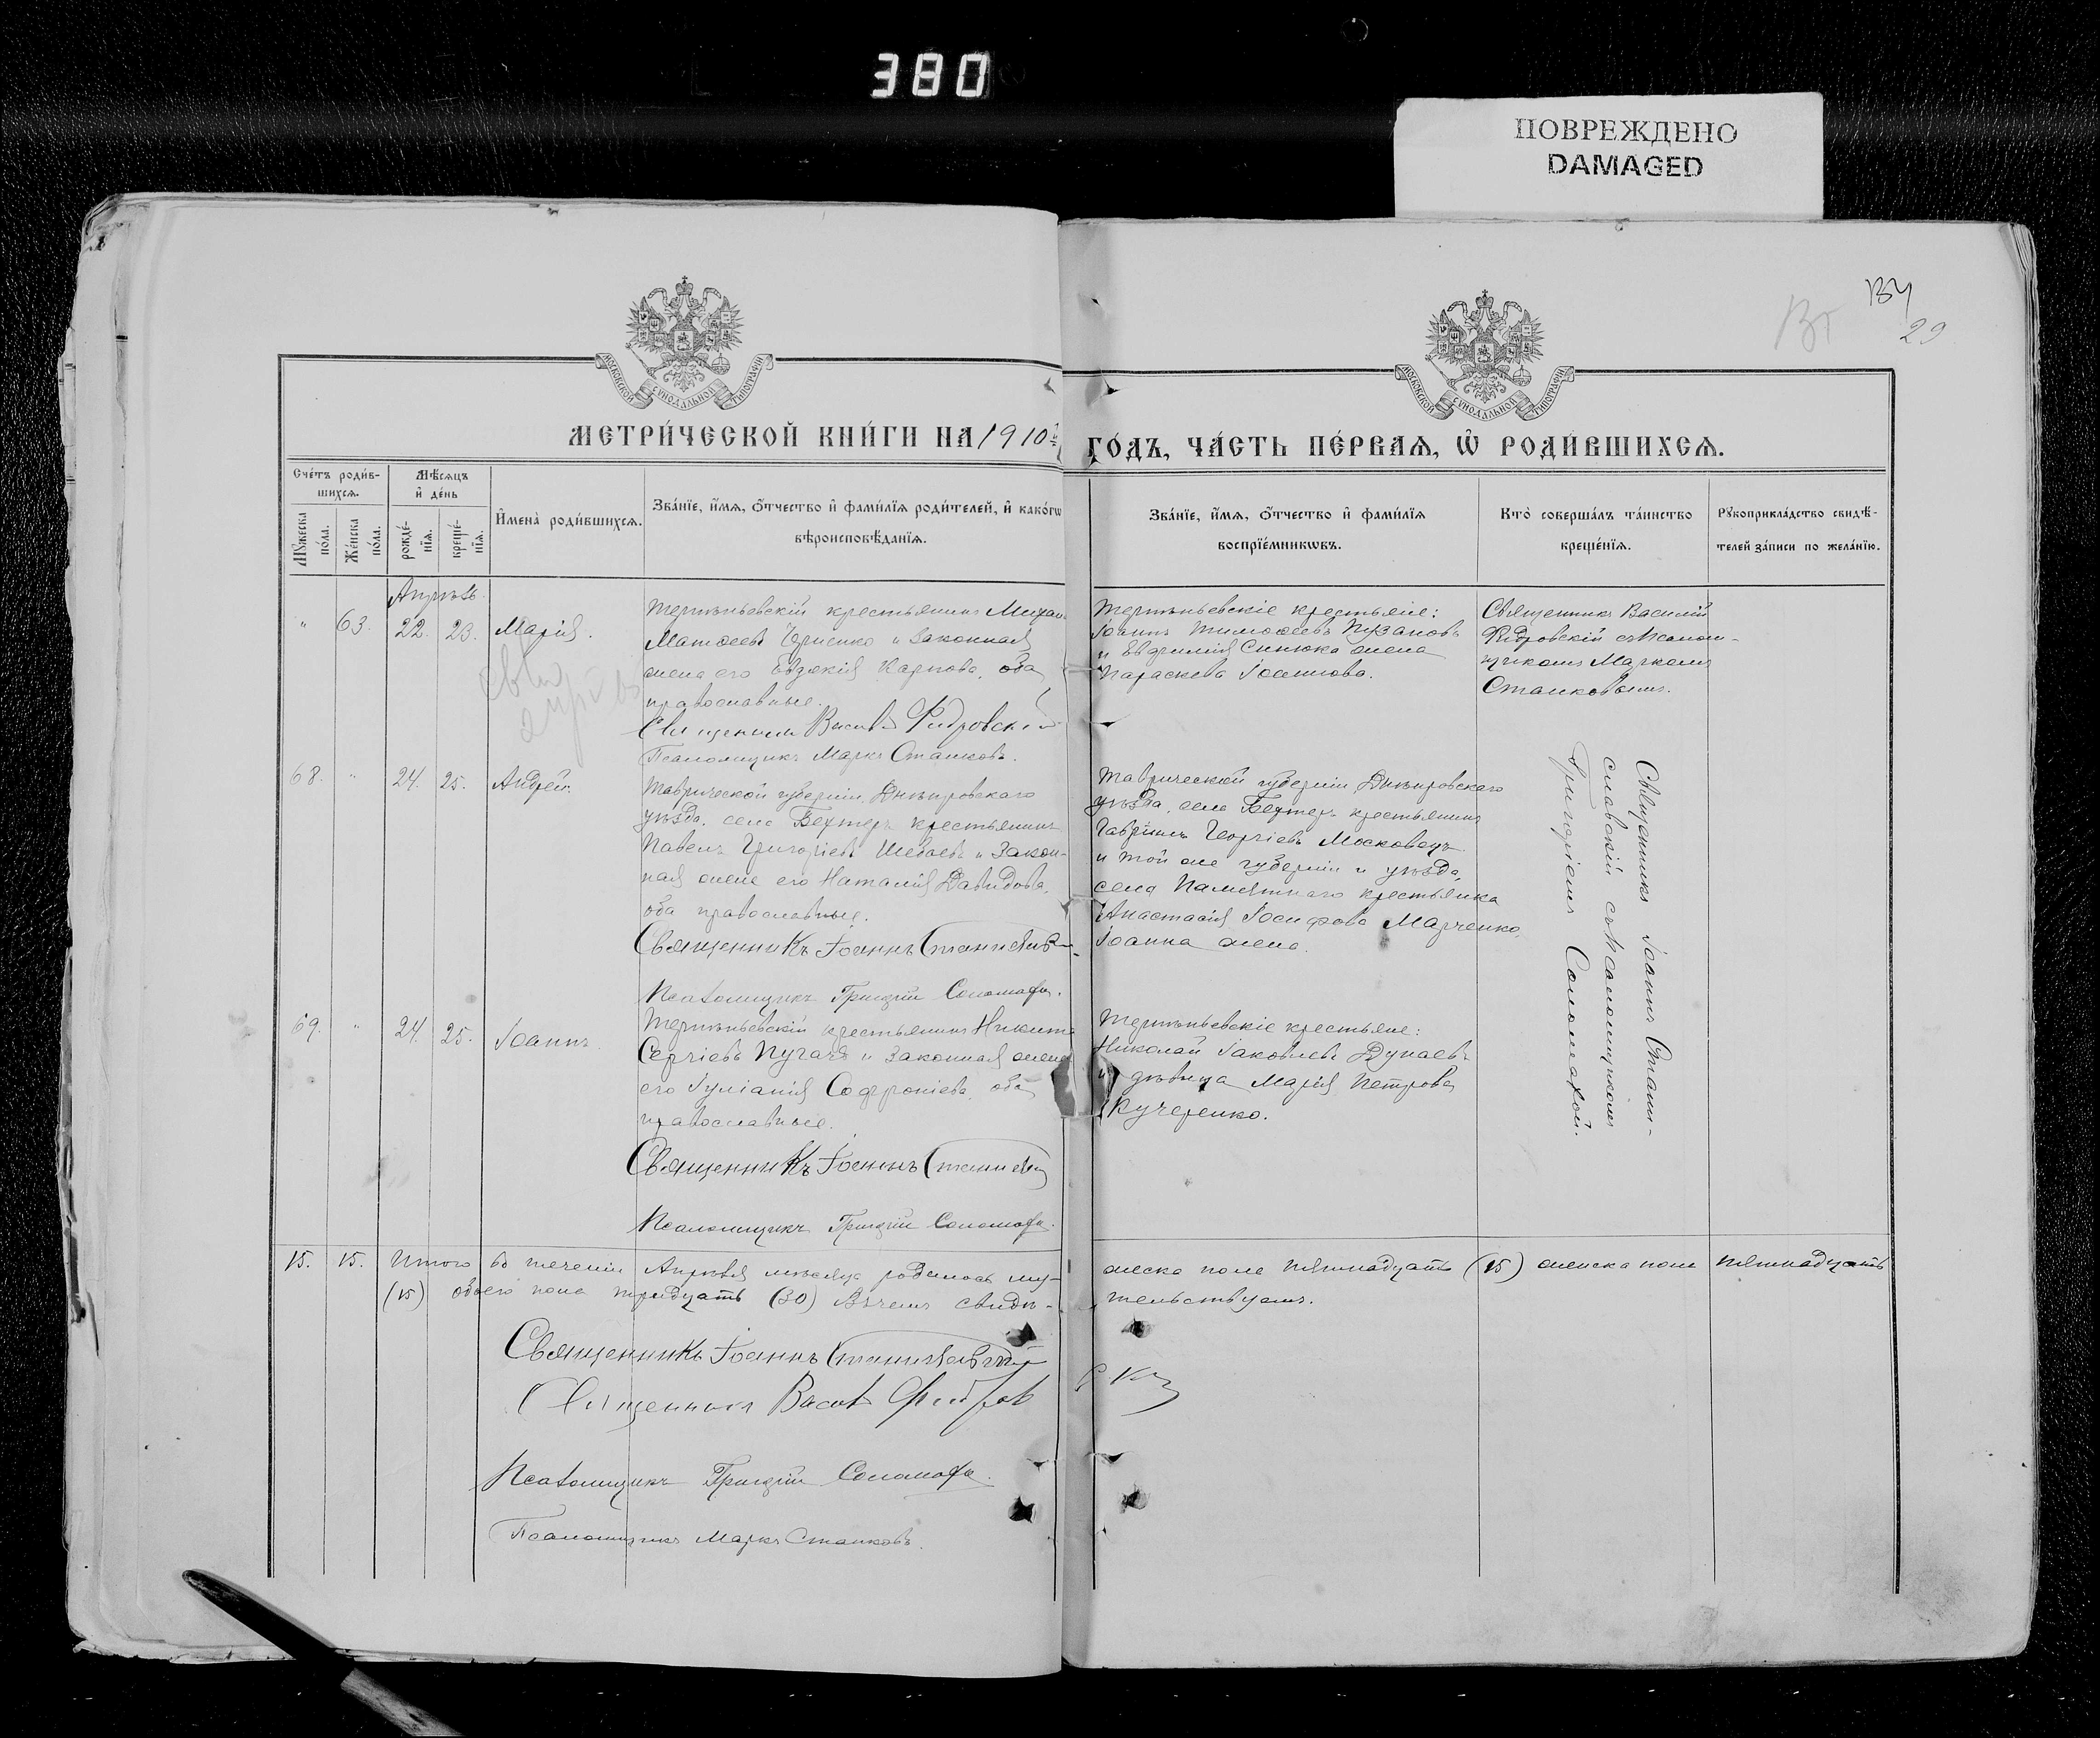 380
ПОВРЕЖДЕНО
DAMAGED
134
29
МОСКОВСКОЙ СУНОДАЛЬНОЙ ТИПОГРАФІИ
МОСКОВСКОЙ СУНОДАЛЬНОЙ ТИПОГРАФІИ
МЕТРИ́ЧЕСКОЙ КНИ́ГИ НА 1910 ГО́ДЪ, ЧА́СТЬ ПЕ́РВАѦ, Ѡ РОДИ́ВШИХСѦ.
Сче́тъ роди́в-
шихсѧ.
Мѣ́сѧцъ
и҆ де́нь
Мꙋ́жеска
по́ла.
Же́нска
по́ла.
рожде́-
нїѧ.
креще́-
нїѧ.
И҆мена̀ роди́вшихсѧ.
Зва́нїе, и҆́мѧ, ѻ҆́тчество и҆ фами́лїѧ роди́телей, и҆ како́гѡ
вѣроисповѣ́данїѧ.
Зва́нїе, и҆́мѧ, ѻ҆́тчество и҆ фами́лїѧ
воспрїе́мникѡвъ.
Кто̀ соверша́лъ та́инство
креще́нїѧ.
Рꙋкоприкла́дство свидѣ́-
телей за́писи по жела́нїю.
Апрѣль
" 63. 22. 23. Марія.
крестьянинъ Михаи
Матѳеевъ и законная
жена его Евдокія Карпова, оба
православные.
Священникъ Василій
Псаломщикъ Маркъ Станковъ.
крестьяне:
Іоаннъ Тимоѳеевъ Пузановъ
и Евфимія жена
Параскева Іоаннова.
Священникъ Василій
съ псалом-
щикомъ Маркомъ
Станковымъ.
68. " 24. 25. Андрей.
Таврической губерніи, Днѣпровскаго
уѣзда, села Бехтеръ крестьянинъ
Павелъ Григоріевъ Шебаевъ и закон-
ная жена его Наталія Давидова,
оба православные.
Священникъ Іоаннъ
Псаломщикъ Григорій Соломаха.
Таврической губерніи, Днѣпровскаго
уѣзда, села Бехтеръ крестьянинъ
Гавріилъ Георгіевъ Московецъ
и той же губерніи и уѣзда,
села Памятнаго крестьянка
Анастасія Іосифова Марченко,
Іоанна жена.
Священникъ Іоаннъ Стани-
славскій съ псаломщикомъ
Григоріемъ Соломахой.
69. " 24. 25. Іоаннъ.
крестьянинъ Никита
Сергіевъ Пугачъ и законная жена
его Іуліанія Софроніева, оба
православные.
Священникъ Іоаннъ
Псаломщикъ Григорій Соломаха.
крестьяне:
Николай Іаковлевъ Дунаевъ
и дѣвица Марія Петрова
Кучеренко.
15. 15. Итого въ теченіи Апрѣля мѣсяца родилось му- жеска пола пятнадцать (15) женска пола пятнадцать
(15) обоего пола тридцать (30) въ чемъ свидѣ- тельствуемъ.
Священникъ Іоаннъ Станиславскій
Священникъ Василій
Псаломщикъ Григорій Соломаха.
Псаломщикъ Маркъ Станковъ.